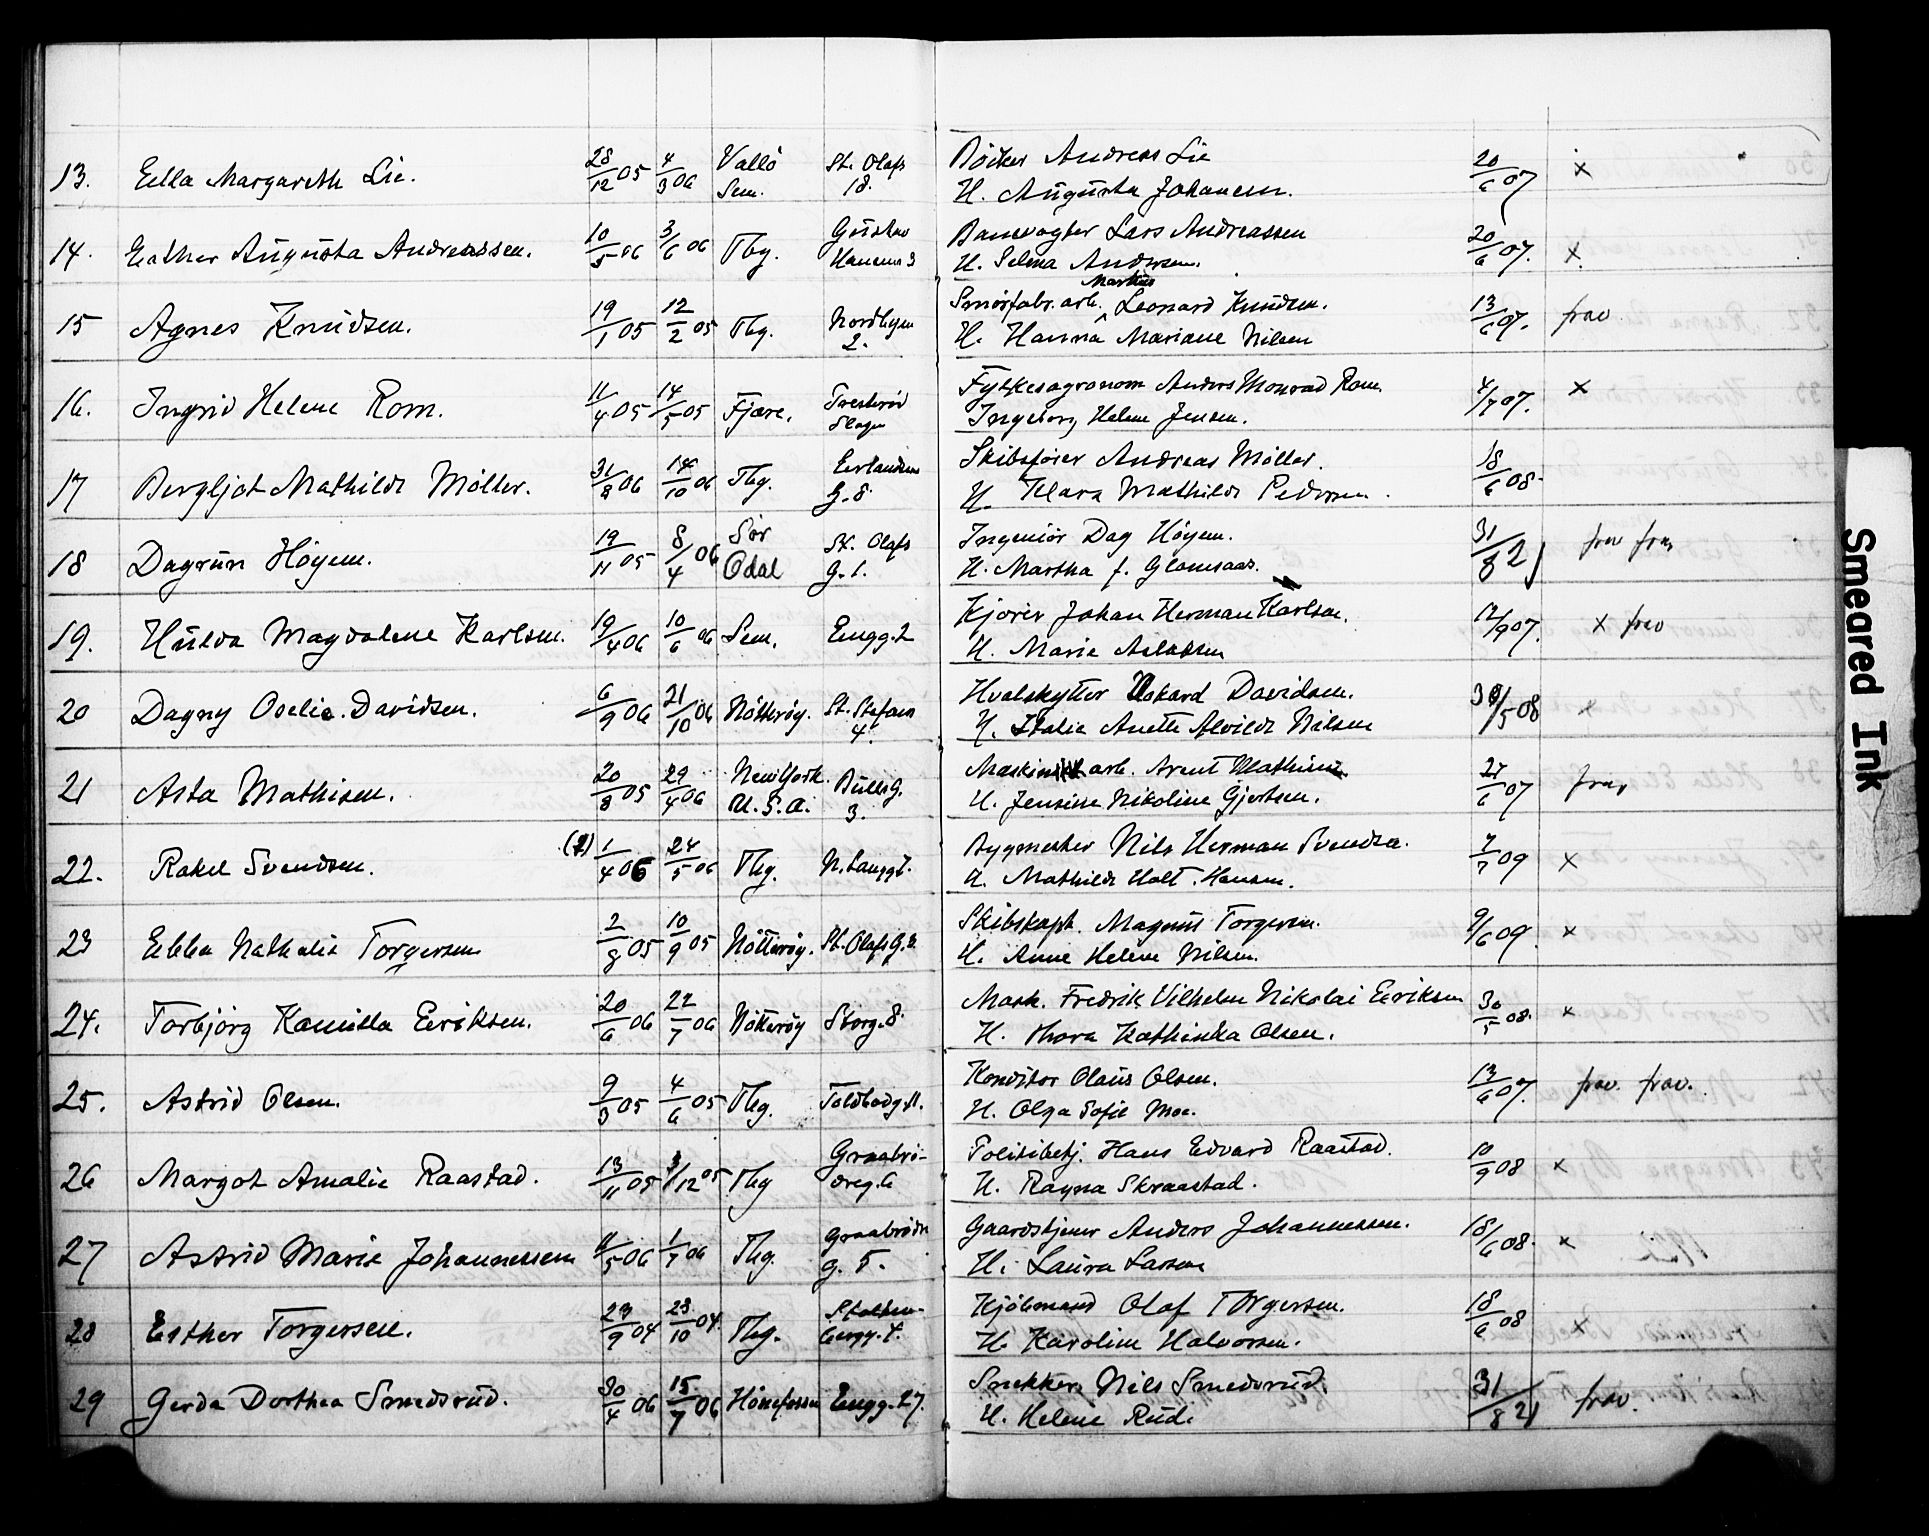 13. Ella Margareth Lie. 28/12 05 4/3 06 Vallö Sem. St. Olafs 18. Böiker Andreas Lie 20/6 07 x
H. Augusta Johansen.
14. Esther Augusta Andreassen. 10/5 06 3/6 06 Tbg. Gustav Hansens 3 Banevogter Lars Andreassen 20/6 07. x
H. Selma Andersen.
15 Agnes Knudsen. 19/1 05 12/2 05 Tbg. Nordbyen 2. Smörfabr. arb. Markus Leonard Knudsen. 13/6 07. frav.
H. Hanna Mariane Nilsen
16. Ingrid Helene Rom. 11/4 05 14/5 05 Fjære. Træleröd Slagen Fylkesagronom Anders Monrad Rom 4/7 07. x
Ingeborg Helene Jensen.
17 Bergljot Mathilde Möller. 31/8 06 14/10 06 Tbg. Erlandsens G. 8. Skibsförer Andreas Möller. 18/6 08.
H. Klara Mathilde Pedersen.
18 Dagrun Höyem. 19/11 05 8/4 06 Sör Odal St. Olafs G. 1. Ingeniör Dag Höyem. 31/8 21 frav frav
H. Martha f. Glomsaas.
19. Hulda Magdalene Karlsen. 19/4 06 10/6 06 Sem. Engg. 2 Kjörer Johan Herman Karlsen. 12/9 07. x frav
H. Marie Aslaksen
20 Dagny Oselie Davidsen. 6/9 06 21/10 06 Nötteröy. St. Stefans 4. Hvalskytter Oskard Davidsen. 30/5 08 x
H. Italie Anette Alvilde Nilsen
21 Asta Mathisen. 20/8 05 29/4 06 New York. U.S.A. Bulls G. 3. Maskinarb. Arent Mathisen 27/6 07 frav
H. Jensine Nikoline Gjertsen.
22. Rakel Svendsen. (2) 1/4 06 24/5 06 Tbg. N. Langg. Bygmester Nils Herman Svendsen. 7/7 09 x
H. Mathilde Holt. Hansen.
23 Ebba Nathalie Torgersen 2/8 05 10/9 05 Nötteröy. St. Olafs G. Skibskapt. Magnus Torgersen. 9/6 09. x
H. Anne Helene Nilsen.
24. Torbjörg Kamilla Eriksen. 20/6 06 22/7 06 Nötteröy Storg. 8. Mask. Fredrik Vilhelm Nikolai Eriksen 30/5 08. x
H. Thora Kathinka Olsen.
25. Astrid Olsen. 9/3 05 4/6 05 Tbg. Toldbodg. 11. Konditor Olaus Olsen. 13/6 07. frav. frav.
H. Olga Sofie Moe.
26 Margot Amalie Raastad. 13/11 05 3/12 05 Tbg Graabrödreg. 6 Politibetj. Hans Edvard Raastad. 10/9 08 x
H. Ragna Skraastad.
27 Astrid Marie Johannessen 11/5 06 1/7 06 Tbg. Graabrödre g. 5. Gaardskjener Anders Johannessen. 18/6 08. x
H. Laura Larsen
28 Esther Torgersen. 23/9 04 23/10 04. Tbg. Stoltenbergg. 4. Kjöbmand Olaf Torgersen. 18/6 08 x
H. Karoline Halvorsen.
29 Gerda Dorthea Smedsrud. 30/4 06 15/7 06 Hönefossen Engg. 27. Snekker Nils Smedsrud. 31/8 21 frav.
H. Helene Rud.
Smeared Ink